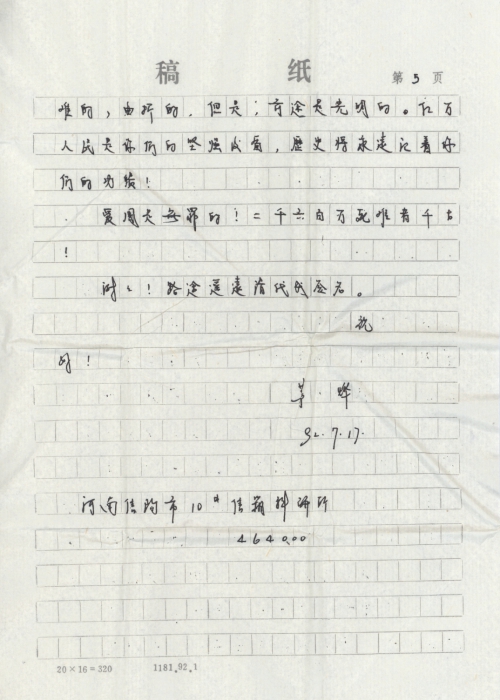 稿 纸
第 5 页
难的，曲折的，但是；前途是光明的。亿万
人民是你们的坚强后盾，历史将永远记着你
们的功绩！
爱国是无罪的！二千六百万死难者千古
！
谢谢！路途遥远请代我签名。
祝
好！
92.7.17.
河南信阳市10#信箱
464000
20×16＝320 1181.92.1